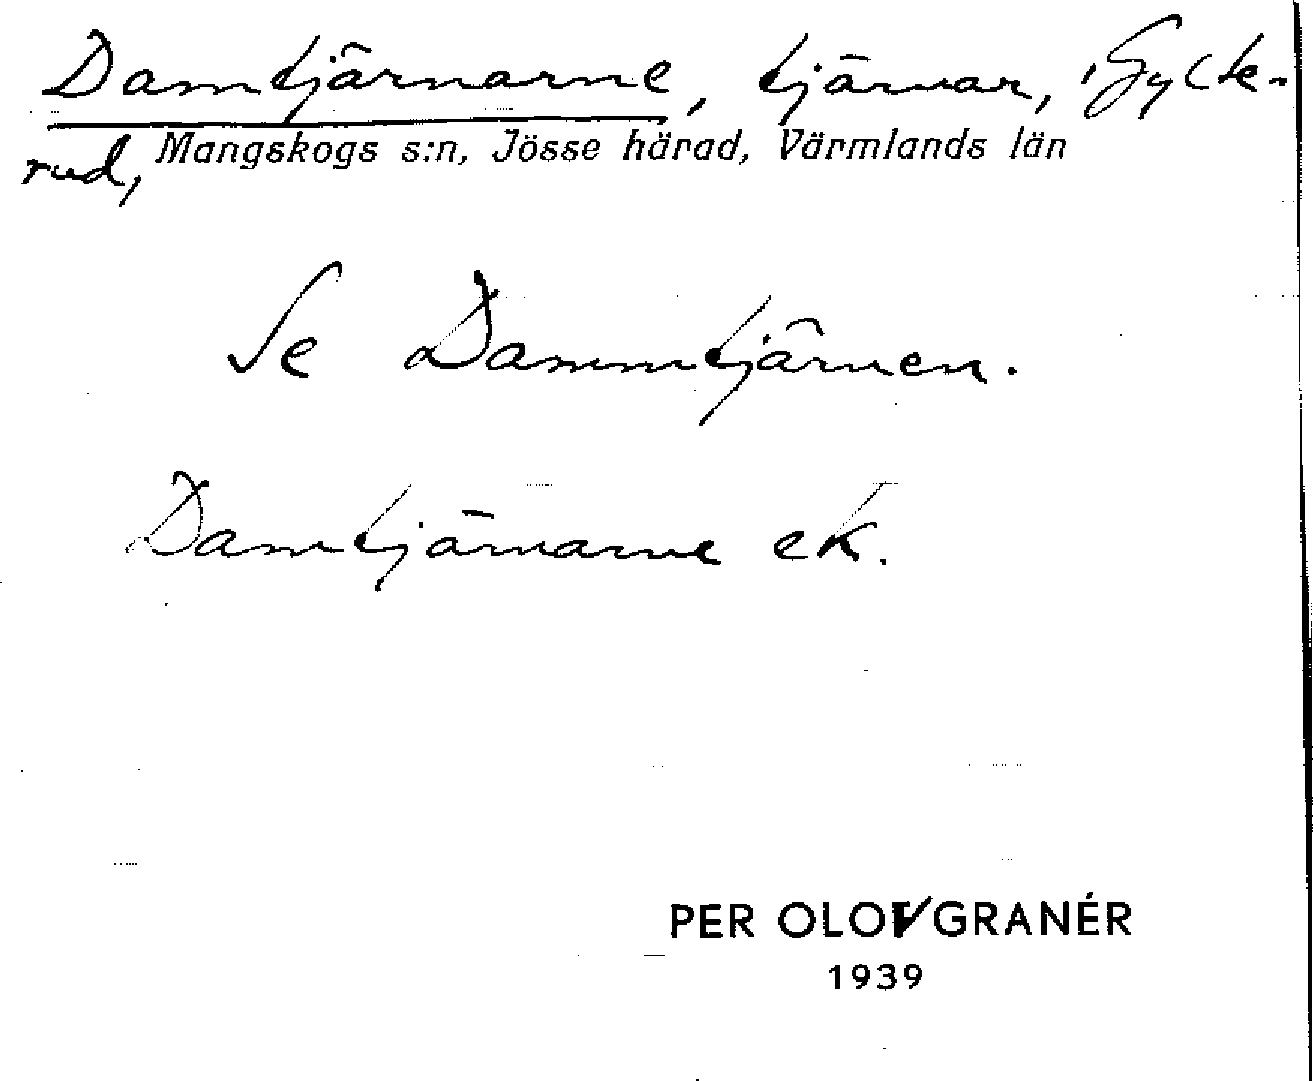 Damtjärnarne, tjärnar, Gylte-
rud, Mangskogs s:n, Jösse härad, Värmlands län
Se Dammtjärnen.
Damtjärnarne ek.
PER OLOV GRANÉR
1939